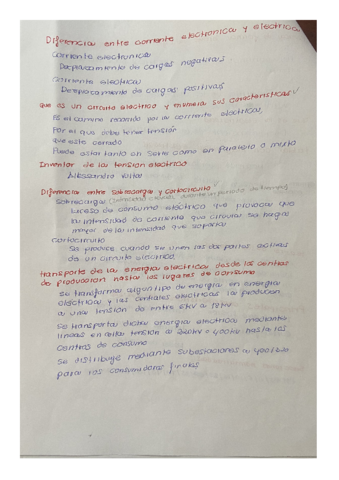 Diferencias entre corriente electronica y electrica
Corriente electronica
Desplazamiento de cargas negativas.
Corriente electrica
Desplazamiento de cargas positivas
que es un circuito electrico y enumera sus caracteristicas
Es el camino recorrido por la corriente electrica,
Por el que debe tener tensión
que este cerrado
Puede estar tanto en serie como en paralelo o mixto
Inventor de la tension electrica
Alessandro Volta
Diferencias entre Sobrecarga y Cortocircuito
Sobrecarga
exceso de consumo electrico que provoca que
la intensidad de corriente que circula sea
mayor de la intensidad que soporta
Cortocircuito
Se produce cuando se unen las dos partes activas
de un circuito electrico.
transporte de la energia electrica desde los centros
de produccion hasta los lugares de consumo
Se transforma algun tipo de energia en energia
electrica y las centrales electricas la producen
a una tension de entre 6KV a 18KV
Se transporta dicha energia electrica mediante
lineas en alta tension a o 400KV hasta los
centros de consumo
Se distribuye mediante subestaciones a 400/230
para los consumidores finales